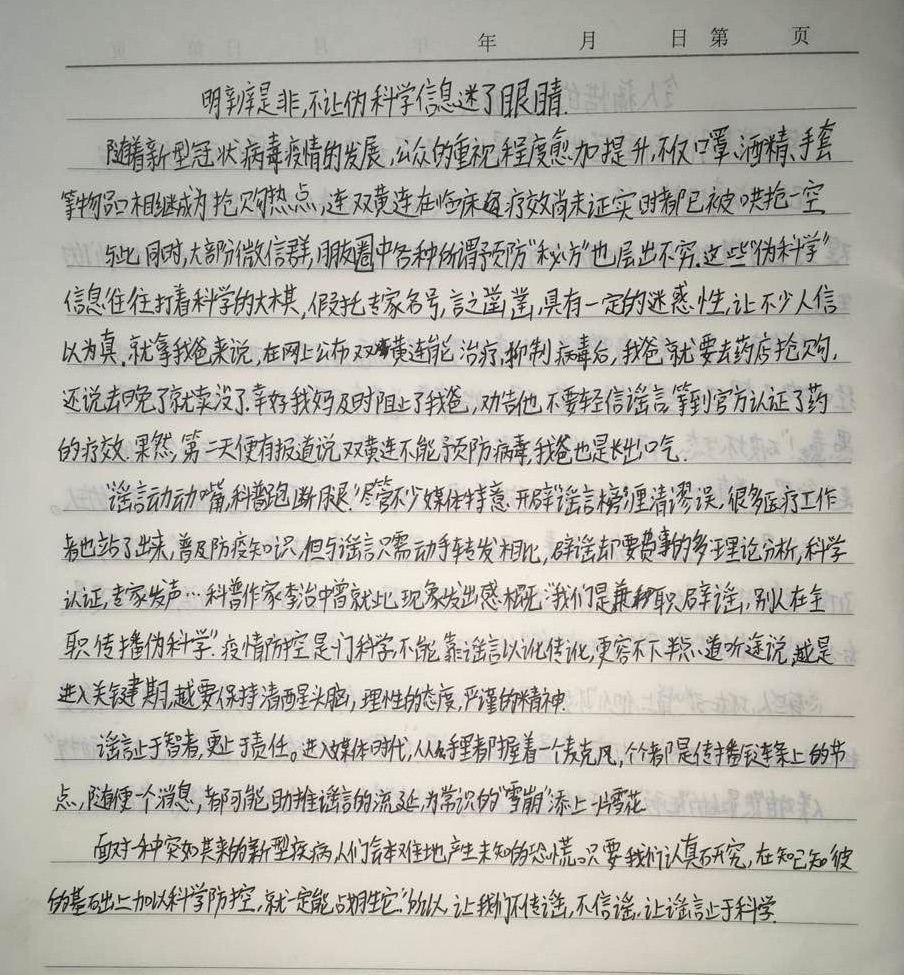 年 月 日 第 页
明辨是非,不让伪科学信息迷了眼睛.
随着新型冠状病毒疫情的发展,公众的重视程度愈加提升,不仅口罩、酒精、手套
等物品相继成为抢购热点,连双黄连在临床疗效尚未证实时都已被哄抢一空
与此同时,大部分微信群,朋友圈中各种所谓预防“秘方”也层出不穷.这些“伪科学”
信息往往打着科学的大旗,假托专家名号,言之凿凿,具有一定的迷惑性,让不少人信
以为真.就拿我爸来说,在网上公布双黄连能治疗、抑制病毒后,我爸就要去药店抢购,
还说去晚了就卖没了.幸好我妈及时阻止了我爸,劝告他不要轻信谣言等到官方认证了药
的疗效.果然,第二天便有报道说双黄连不能预防病毒,我爸也是长出口气.
“谣言动动嘴,科普跑断腿.”尽管不少媒体特意开辟“谣言榜”厘清谬误,很多医疗工作
者也站了出来,普及防疫知识.但与谣言只需动手转发相比,辟谣却要费事的多.理论分析,科学
认证,专家发声…科普作家李治中曾就此现象发出感概:“我们是兼职辟谣,别人在全
职传播伪科学”.疫情防控是门科学,不能靠谣言以讹传讹,更容不下判断、道听途说,越是
进入关键期,越要保持清醒头脑,理性的态度,严谨的精神.
谣言止于智者,更止于责任。进入媒体时代,人人手里都握着一个麦克风,个个都是传播链条上的节
点,随便一个消息,都可能助推谣言的流延,为常识的“雪崩”添上一片雪花.
面对一种突如其来的新型疾病,人们会本难地产生未知的恐慌。只要我们认真研究,在知己知彼
的基础上加以科学防控,就一定能战胜它.”所以,让我们不传谣,不信谣,让谣言止于科学.